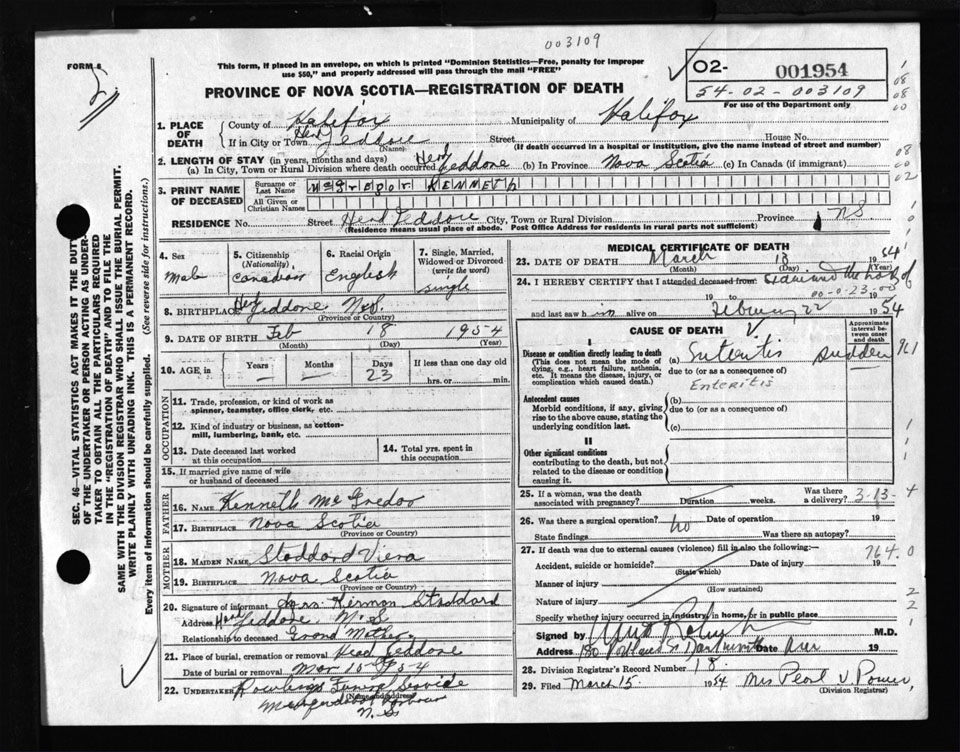 003109
FORM 6
This form, if placed in an envelope, on which is printed "Dominion Statistics—Free, penalty for improper
use $50," and properly addressed will pass through the mail "FREE"
PROVINCE OF NOVA SCOTIA—REGISTRATION OF DEATH
02- 001954
54-02-003109
For use of the Department only
SEC. 46—VITAL STATISTICS ACT MAKES IT THE DUTY
OF THE UNDERTAKER OR PERSON ACTING AS UNDER-
TAKER TO OBTAIN ALL THE PARTICULARS REQUIRED
IN THE "REGISTRATION OF DEATH" AND TO FILE THE
SAME WITH THE DIVISION REGISTRAR WHO SHALL ISSUE THE BURIAL PERMIT.
WRITE PLAINLY WITH UNFADING INK. THIS IS A PERMANENT RECORD.
Every item of information should be carefully supplied. (See reverse side for instructions.)
1. PLACE OF DEATH County of Halifax Municipality of Halifax
If in City or Town Head Jeddore (Name) Street House No.
(If death occurred in a hospital or institution, give the name instead of street and number)
2. LENGTH OF STAY (in years, months and days)
(a) In City, Town or Rural Division where death occurred Head Jeddore (b) In Province Nova Scotia (c) In Canada (if immigrant)
3. PRINT NAME OF DECEASED Surname or Last Name McGregor KENNETH
All Given or Christian Names
RESIDENCE No. Street Head Jeddore City, Town or Rural Division Province NS
(Residence means usual place of abode. Post Office Address for residents in rural parts not sufficient)
4. Sex Male
5. Citizenship (Nationality) Canadian
6. Racial Origin English
7. Single, Married, Widowed or Divorced (write the word) single
8. BIRTHPLACE Head Jeddore N.S.
(Province or Country)
9. DATE OF BIRTH Feb 18 1954
(Month) (Day) (Year)
10. AGE in Years — Months — Days 23 If less than one day old hrs. or min.
OCCUPATION
11. Trade, profession, or kind of work as
spinner, teamster, office clerk, etc.
12. Kind of industry or business, as cotton-
mill, lumbering, bank, etc.
13. Date deceased last worked
at this occupation
14. Total yrs. spent in
this occupation
15. If married give name of wife
or husband of deceased
FATHER
16. NAME Kenneth McGredor
17. BIRTHPLACE Nova Scotia
(Province or Country)
MOTHER
18. MAIDEN NAME Stoddard Viera
19. BIRTHPLACE Nova Scotia
(Province or Country)
20. Signature of informant Hermon Stoddard
Address Head Jeddore N.S
Relationship to deceased Grand Mother
21. Place of burial, cremation or removal Head Jeddore
Date of burial or removal Mar 15 1954
22. UNDERTAKER Funeral Service
(Name and address)
Musquodoboit Harbour
N.S
MEDICAL CERTIFICATE OF DEATH
23. DATE OF DEATH March 13 1954
(Month) (Day) (Year)
24. I HEREBY CERTIFY that I attended deceased from: Examined the body of
19 to 00-0-23-00
and last saw him alive on February 22 1954
CAUSE OF DEATH
Approximate interval between onset and death
I
Disease or condition directly leading to death
(This does not mean the mode of
dying, e.g., heart failure, asthenia,
etc. It means the disease, injury, or
complication which caused death.)
(a) Enteritis sudden
due to (or as a consequence of)
Enteritis
Antecedent causes
Morbid conditions, if any, giving
rise to the above cause, stating the
underlying condition last.
(b)
due to (or as a consequence of)
(c)
II
Other significant conditions
contributing to the death, but not
related to the disease or condition
causing it.
25. If a woman, was the death
associated with pregnancy? Duration weeks. Was there a delivery? 3-13-4
26. Was there a surgical operation? no Date of operation 19
State findings Was there an autopsy?
27. If death was due to external causes (violence) fill in also the following:— 764.0
Accident, suicide or homicide? Date of injury 19
(State which)
Manner of injury
(How sustained)
Nature of injury
Specify whether injury occurred in industry, in home, or in public place
Signed by M.D.
Address 180 Portland St Dartmouth Date 19
28. Division Registrar's Record Number 18.
29. Filed March 15 1954 Mrs Pearl V. Power
(Division Registrar)